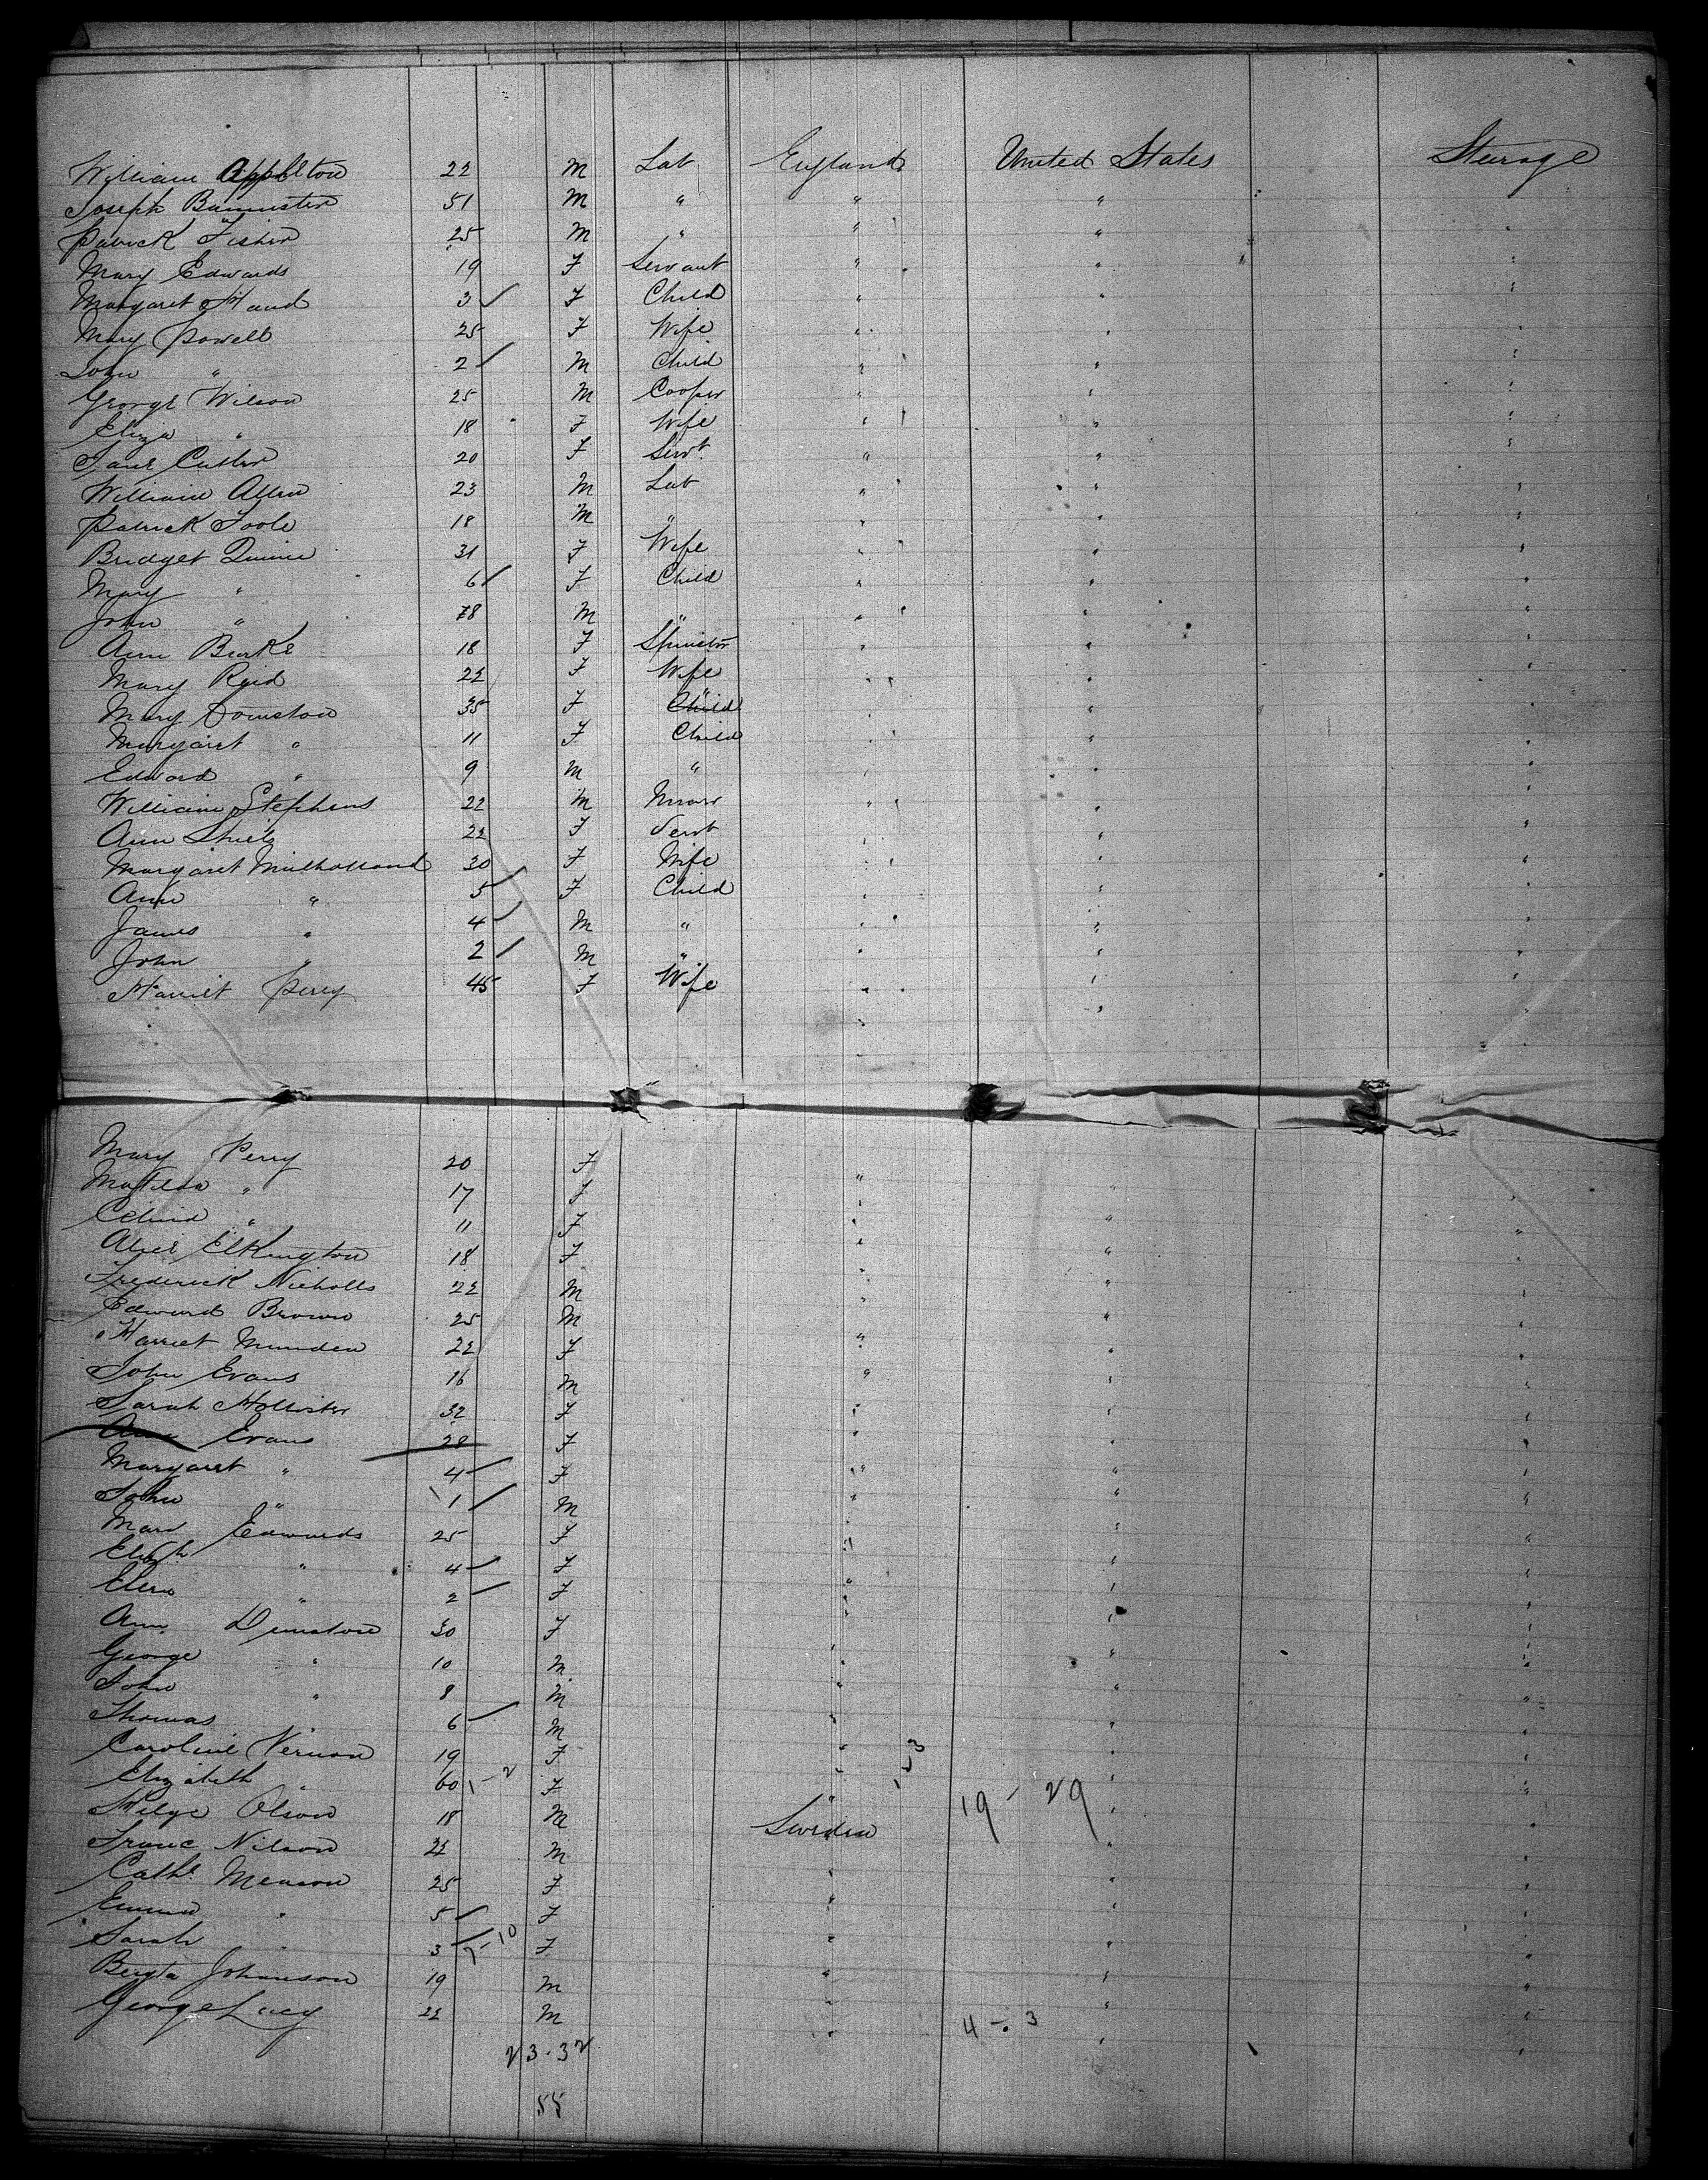 William Appleton 22 M Lab England United States Steerage
Joseph Bannister 51 M " " " "
Patrick Fisher 25 M " " " "
Mary Edwards 19 F Servant " " "
Margaret Hand 3 F Child " " "
Mary Powell 25 F Wife " " "
John " 2 M Child " " "
George Wilson 25 M Cooper " " "
Eliza " 18 F Wife " " "
Jane Cutler 20 F Servt " " "
William Allen 23 M Lab " " "
Patrick Toole 18 M " " " "
Bridget Quinn 31 F Wife " " "
Mary " 6 F Child " " "
John " 8 M " " " "
Ann Burke 18 F Spinster " " "
Mary Reid 22 F Wife " " "
Mary 35 F " " " "
Margaret " 11 F Child " " "
Edward " 9 M " " " "
William Stephens 22 M " " "
Ann 22 F Servt " " "
Margaret Mulholland 30 F Wife " " "
Ann " 5 F Child " " "
James " 4 M " " " "
John " 2 M " " " "
Harriet Perry 45 F Wife " " "
Mary Perry 20 F " " "
Matilda " 17 F " " "
" 11 F " " "
Alice Elkington 18 F " " "
Frederick Nicholls 22 M " " "
Edward Brown 25 M " " "
Harriet Munden 22 F " " "
John Evans 16 M " " "
Sarah Hollister 32 F " " "
Ann Evans 28 F " " "
Margaret " 4 F " " "
John " 1 M " " "
Edwards 25 F " " "
Elizth " 4 F " " "
Ellen " 2 F " " "
Ann 30 F " " "
George " 10 M " " "
John " 8 M " " "
Thomas " 6 M " " "
Caroline Vernon 19 F " " "
Elizabeth " 60 1-2 F " 1-3 " "
Olson 18 M Sweden 19-29 " "
Nilson M " " "
Cathe 25 F " " "
Emma " 5 F " " "
Sarah " 3 7-10 F " " "
Johanson 19 M " " "
George Lucy 22 M " 4-3 " "
23-32
55